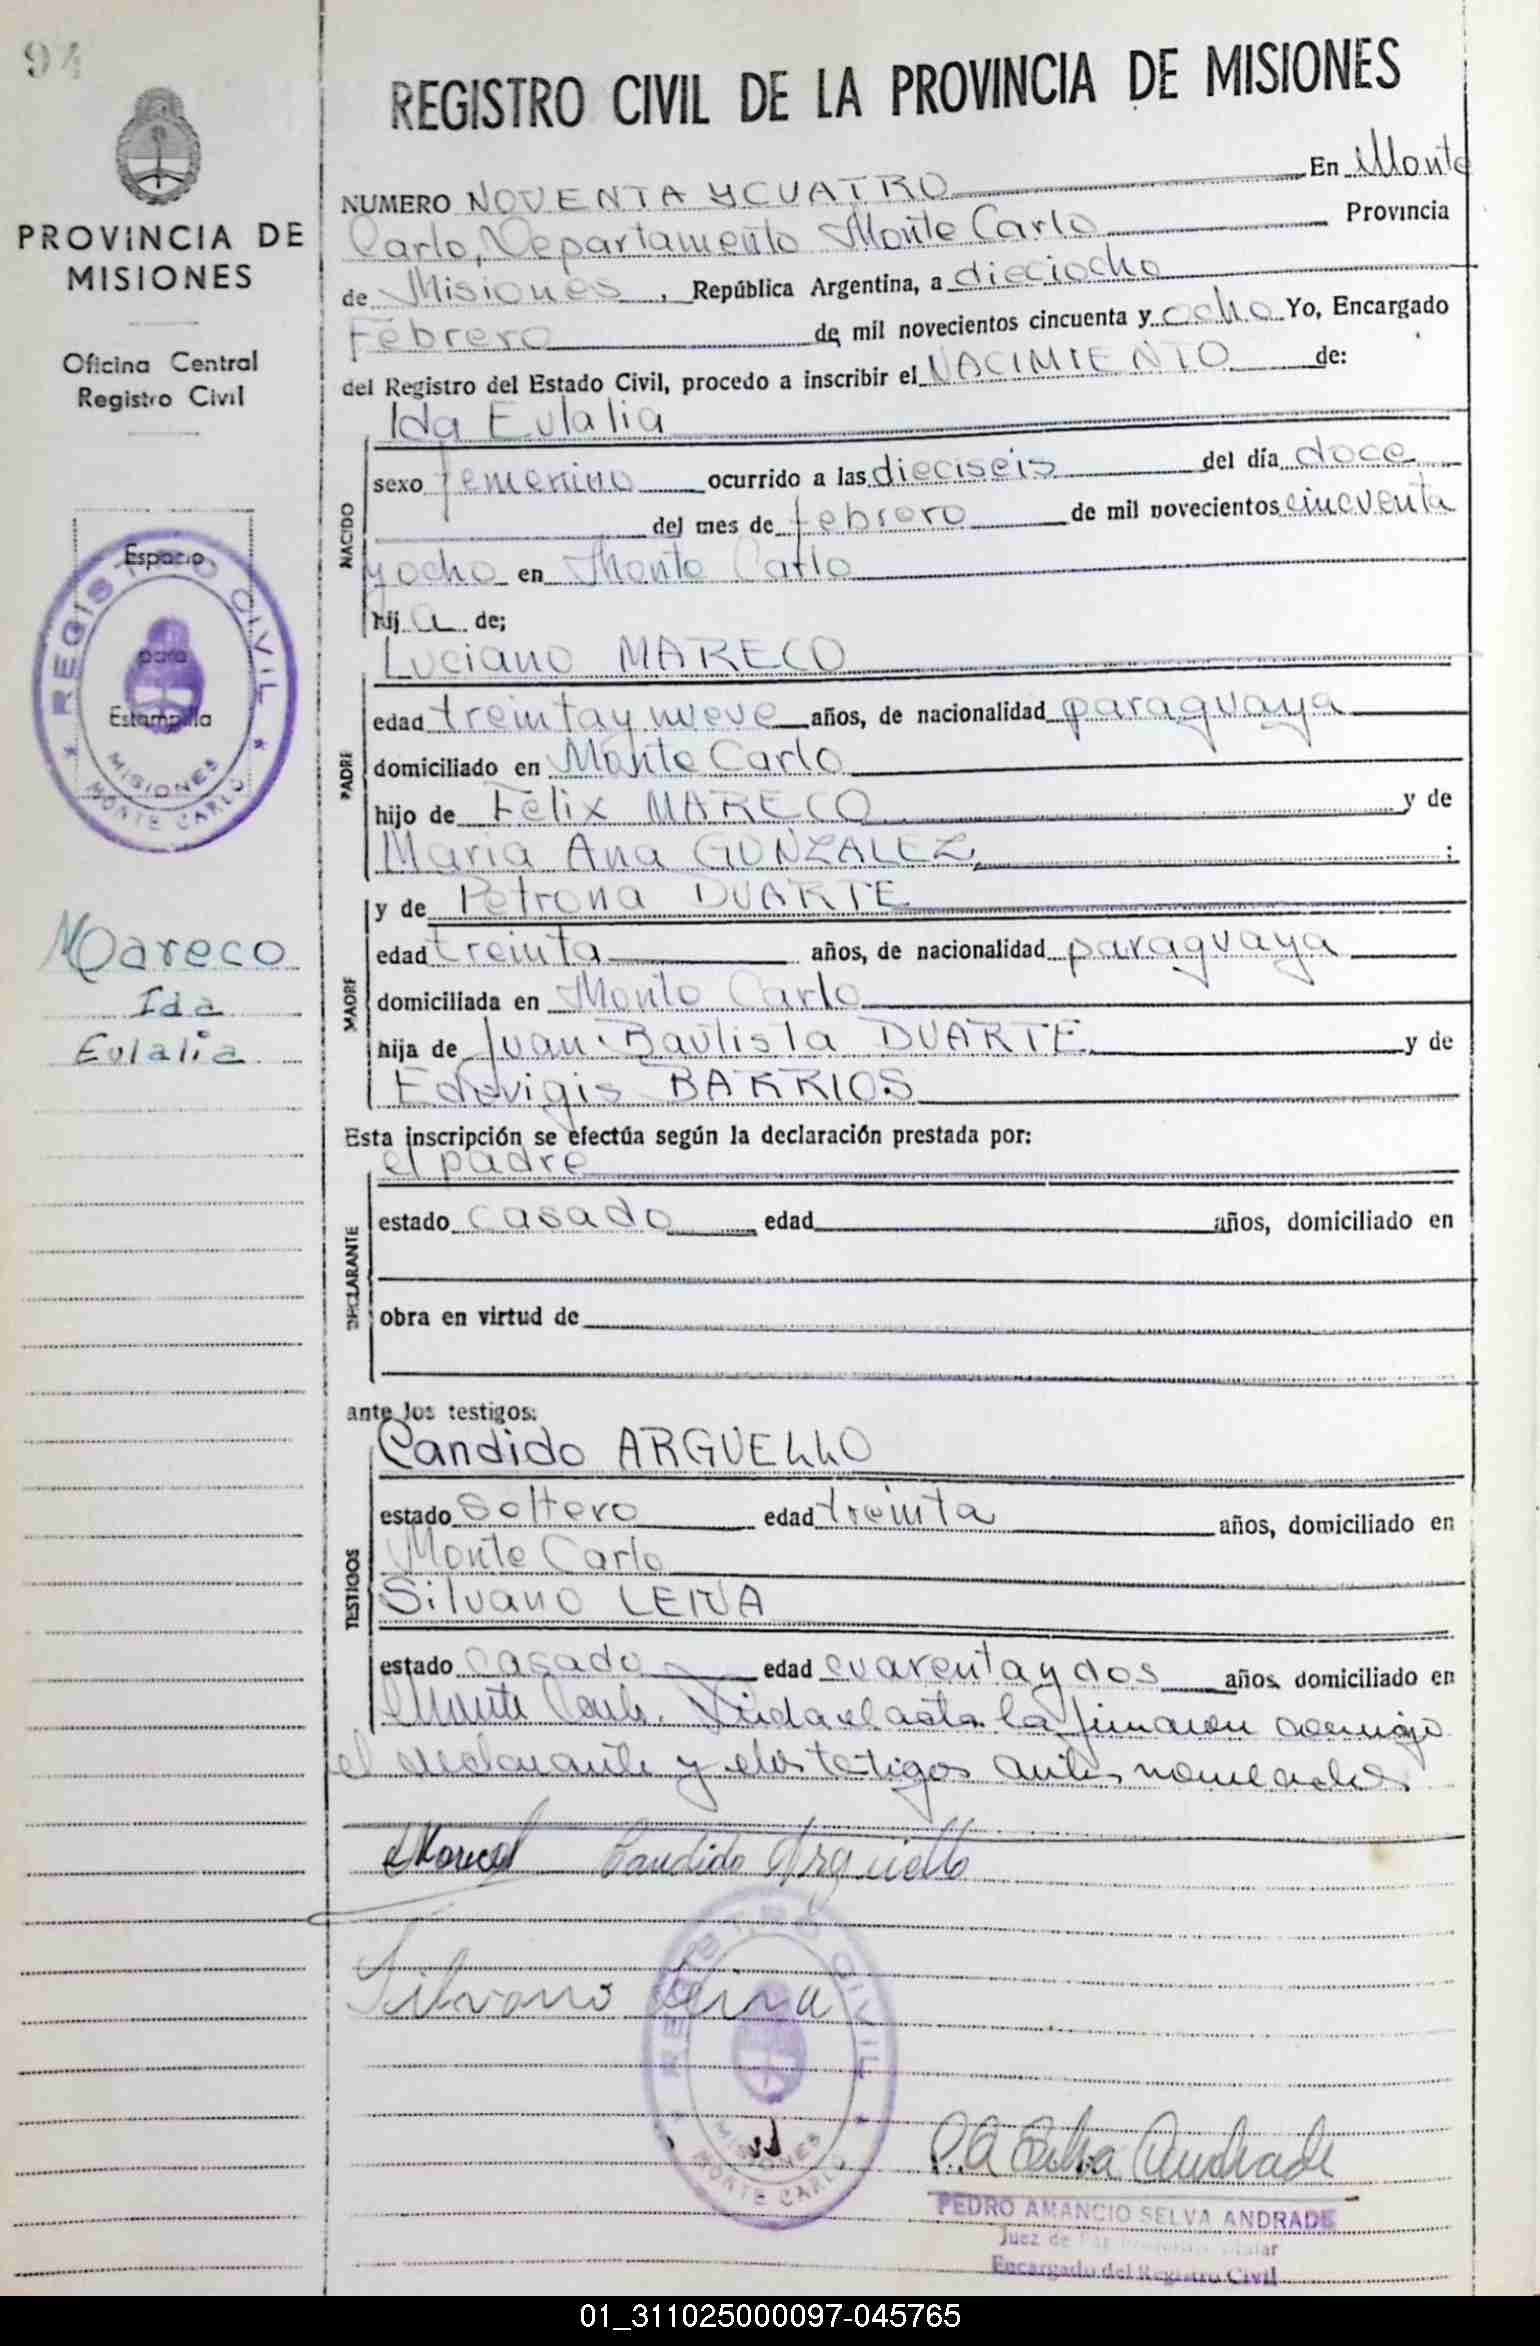 94
PROVINCIA DE
MISIONES
Oficina Central
Registro Civil
Espacio
para
Estampilla
REGISTRO CIVIL
MISIONES
MONTE CARLO
Mareco
Ida
Eulalia
REGISTRO CIVIL DE LA PROVINCIA DE MISIONES
NUMERO NOVENTA Y CUATRO En Monte
Carlo, Departamento Monte Carlo Provincia
de Misiones, República Argentina, a dieciocho
Febrero de mil novecientos cincuenta y ocho Yo, Encargado
del Registro del Estado Civil, procedo a inscribir el NACIMIENTO de:
NACIDO
Ida Eulalia
sexo femenino ocurrido a las dieciseis del día doce
del mes de febrero de mil novecientos cincuenta
y ocho en Monte Carlo
hij a de;
PADRE
Luciano MARECO
edad treinta y nueve años, de nacionalidad paraguaya
domiciliado en Monte Carlo
hijo de Felix MARECO y de
Maria Ana GONZALEZ, ;
MADRE
y de Petrona DUARTE
edad treinta años, de nacionalidad paraguaya
domiciliada en Monte Carlo
hija de Juan Bautista DUARTE y de
Eduvigis BARRIOS
Esta inscripción se efectúa según la declaración prestada por:
DECLARANTE
el padre
estado casado edad años, domiciliado en
obra en virtud de
ante los testigos:
TESTIGOS
Candido ARGUELLO
estado soltero edad treinta años, domiciliado en
Monte Carlo
Silvano LEIVA
estado casado edad cuarenta y dos años domiciliado en
Monte Carlo. Leida el acta la firmaron conmigo
el declarante y los testigos antes nombrados
Mareco Candido Arguello
Silvano Leiva
REGISTRO CIVIL
MISIONES
MONTE CARLO
P. A. Selva Andrade
PEDRO AMANCIO SELVA ANDRADE
Juez de Paz Titular
Encargado del Registro Civil
01_311025000097-045765